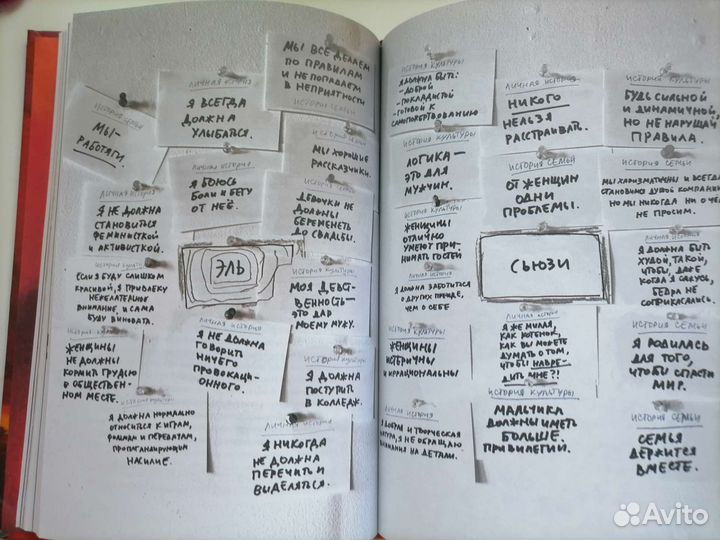 ИСТОРИЯ СЕМЬИ
МЫ –
РАБОТЯГИ.
ЛИЧНАЯ ИСТОРИЯ
Я ВСЕГДА
ДОЛЖНА
УЛЫБАТЬСЯ.
МЫ ВСЕ ДЕЛАЕМ
ПО ПРАВИЛАМ
И НЕ ПОПАДАЕМ
В НЕПРИЯТНОСТИ
ИСТОРИЯ СЕМЬИ
ЛИЧНАЯ ИСТОРИЯ
Я НЕ ДОЛЖНА
СТАНОВИТЬСЯ
ФЕМИНИСТКОЙ
И АКТИВИСТКОЙ.
ЛИЧНАЯ ИСТОРИЯ
Я БОЮСЬ
БОЛИ И БЕГУ
ОТ НЕЁ.
ИСТОРИЯ СЕМЬИ
МЫ ХОРОШИЕ
РАССКАЗЧИКИ.
ИСТОРИЯ СЕМЬИ
ДЕВОЧКИ НЕ
ДОЛЖНЫ
БЕРЕМЕНЕТЬ
ДО СВАДЬБЫ.
ЭЛЬ
ИСТОРИЯ КУЛЬТУРЫ
ЕСЛИ Я БУДУ СЛИШКОМ
КРАСИВОЙ, Я ПРИВЛЕКУ
НЕЖЕЛАТЕЛЬНОЕ
ВНИМАНИЕ, И САМА
БУДУ ВИНОВАТА.
ИСТОРИЯ КУЛЬТУРЫ
МОЯ ДЕВСТ-
ВЕННОСТЬ –
ЭТО ДАР
МОЕМУ МУЖУ.
ИСТОРИЯ КУЛЬТУРЫ
ЖЕНЩИНЫ
НЕ ДОЛЖНЫ
КОРМИТЬ ГРУДЬЮ
В ОБЩЕСТВЕН-
НОМ МЕСТЕ.
ЛИЧНАЯ ИСТОРИЯ
Я НЕ ДОЛЖНА
ГОВОРИТЬ
НИЧЕГО
ПРОВОКАЦИ-
ОННОГО.
ИСТОРИЯ КУЛЬТУРЫ
Я ДОЛЖНА
ПОСТУПИТЬ
В КОЛЛЕДЖ.
ИСТОРИЯ КУЛЬТУРЫ
Я ДОЛЖНА НОРМАЛЬНО
ОТНОСИТЬСЯ К ИГРАМ,
И ПЕРЕДАЧАМ,
ПРОПАГАНДИРУЮЩИМ
НАСИЛИЕ.
ЛИЧНАЯ ИСТОРИЯ
Я НИКОГДА
НЕ ДОЛЖНА
ПЕРЕЧИТЬ И
ВЫДЕЛЯТЬСЯ.
ИСТОРИЯ КУЛЬТУРЫ
Я ДОЛЖНА БЫТЬ:
- ДОБРОЙ
- ПОКЛАДИСТОЙ
- ГОТОВОЙ К
САМОПОЖЕРТВОВАНИЮ
ЛИЧНАЯ ИСТОРИЯ
НИКОГО
НЕЛЬЗЯ
РАССТРАИВАТЬ.
ИСТОРИЯ КУЛЬТУРЫ
БУДЬ СИЛЬНОЙ
И ДИНАМИЧНОЙ,
НО НЕ НАРУШАЙ
ПРАВИЛА.
ИСТОРИЯ КУЛЬТУРЫ
ЛОГИКА –
ЭТО ДЛЯ
МУЖЧИН.
ИСТОРИЯ СЕМЬИ
ОТ ЖЕНЩИН
ОДНИ
ПРОБЛЕМЫ.
ИСТОРИЯ СЕМЬИ
МЫ ХАРИЗМАТИЧНЫ И ВСЕГДА
СТАНОВИМСЯ ДУШОЙ КОМПАНИИ
НО МЫ НИКОГДА НИ О ЧЕМ
НЕ ПРОСИМ.
ИСТОРИЯ КУЛЬТУРЫ
ЖЕНЩИНЫ
ОТЛИЧНО
УМЕЮТ ПРИ-
НИМАТЬ ГОСТЕЙ
СЬЮЗИ
Я ДОЛЖНА БЫТЬ
ХУДОЙ, ТАКОЙ,
ЧТОБЫ, ДАЖЕ
КОГДА Я САЖУСЬ,
БЕДРА НЕ
СОПРИКАСАЛИСЬ.
ЛИЧНАЯ ИСТОРИЯ
Я ДОЛЖНА ЗАБОТИТЬСЯ
О ДРУГИХ ПРЕЖДЕ,
ЧЕМ О СЕБЕ
ИСТОРИЯ КУЛЬТУРЫ
ЖЕНЩИНЫ
ИСТЕРИЧНЫ
И ИРРАЦИОНАЛЬНЫ
ЛИЧНАЯ ИСТОРИЯ
Я ЖЕ МИЛАЯ,
КАК КОТЕНОК,
КАК ВЫ МОЖЕТЕ
ДУМАТЬ О ТОМ,
ЧТОБЫ НАВРЕ-
ДИТЬ МНЕ?!
ИСТОРИЯ СЕМЬИ
Я РОДИЛАСЬ
ДЛЯ ТОГО,
ЧТОБЫ СПАСТИ
МИР.
ЛИЧНАЯ ИСТОРИЯ
Я ДОБРАЯ И ТВОРЧЕСКАЯ
НАТУРА, Я НЕ ОБРАЩАЮ
ВНИМАНИЯ НА ДЕТАЛИ.
ИСТОРИЯ КУЛЬТУРЫ
МАЛЬЧИКИ
ДОЛЖНЫ ИМЕТЬ
БОЛЬШЕ
ПРИВИЛЕГИЙ.
ИСТОРИЯ СЕМЬИ
СЕМЬЯ
ДЕРЖИТСЯ
ВМЕСТЕ.
Avito